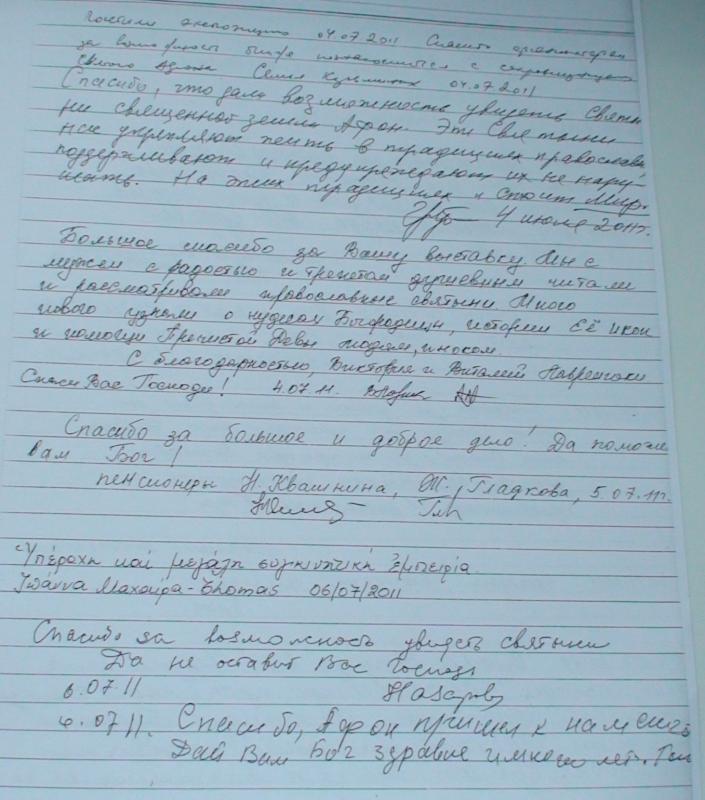 экспозицию 04.07.2011 Спасибо организаторам
за возможность познакомиться с сокровищами
Святого Афона Семья 04.07.2011
Спасибо, что дали возможность увидеть Святы
ни священной земли Афон. Эти Святыни
нас укрепляют жить в традициях православия
поддерживают и предупреждают их не нару-
шать. На этих традициях и стоит Мир.
4 июля 2011г.
Большое спасибо за Вашу выставку. Мы с
мужем с радостью и трепетом душевным читали
и рассматривали православные святыни. Много
нового узнали о чудесах Богородицы, истории Её икон
и помощи Пречистой Девы людям, инокам.
С благодарностью, Виктория и Виталий
Спаси Вас Господи! 4.07.11.
Спасибо за большое и доброе дело! Да поможе
вам Бог!
пенсионеры Н. Квашнина, Гладкова, 5.07.11г.
Υπέροχη και μεγάλη συγκινητική εμπειρία.
Ιωάννα Μαχαίρα-Thomas 06/07/2011
Спасибо за возможность увидеть святыни
Да не оставит Вас Господь
6.07.11
6.07.11. Спасибо, Афон пришел к нам
Дай Вам Бог здравие и много лет.